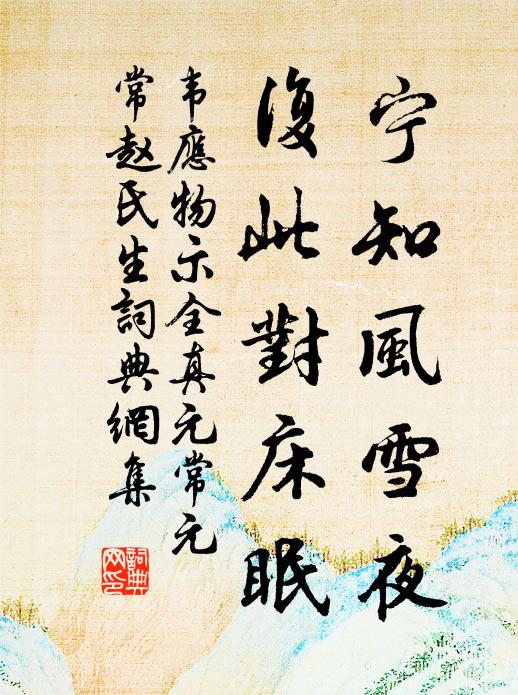 宁知風雪夜
復此對床眠
韦應物示全真元常元
常赵民生詞典網集
詞典
网印